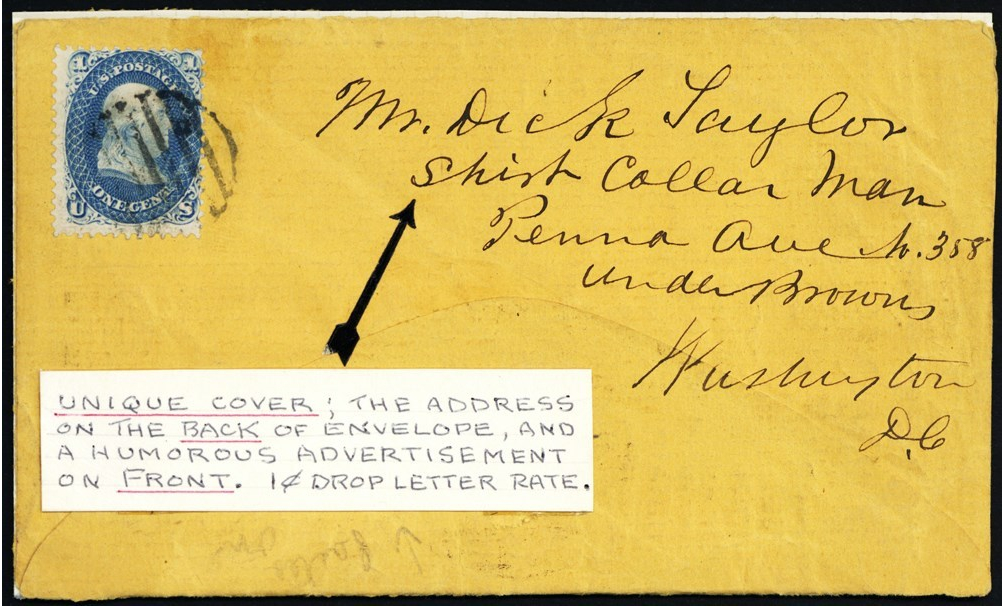 1 1
U.S. POSTAGE
ONE CENT
U S
Mr. Dick Taylor
Shirt Collar Man
Penna Ave No. 358
Under Browns
Washington
D.C
UNIQUE COVER; THE ADDRESS
ON THE BACK OF ENVELOPE, AND
A HUMOROUS ADVERTISEMENT
ON FRONT. 1¢ DROP LETTER RATE.